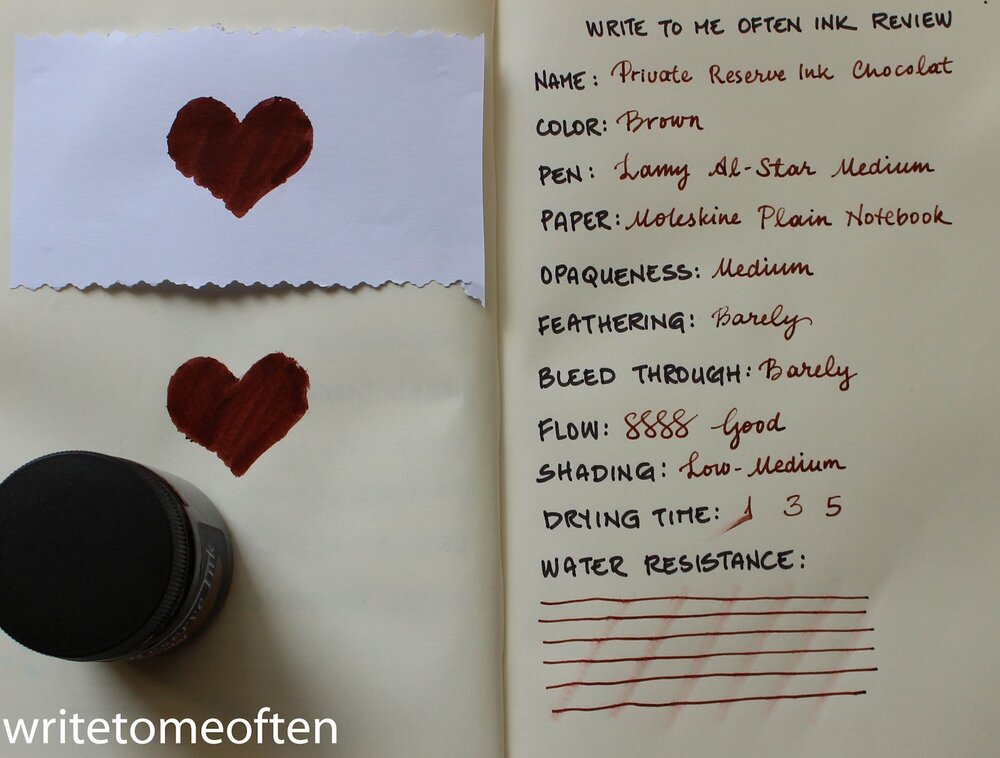 WRITE TO ME OFTEN INK REVIEW
NAME: Private Reserve Ink Chocolat
COLOR: Brown
PEN: Lamy Al-Star Medium
PAPER: Moleskine Plain Notebook
OPAQUENESS: Medium
FEATHERING: Barely
BLEED THROUGH: Barely
FLOW: 8888 Good
SHADING: Low-Medium
DRYING TIME: 1 3 5
WATER RESISTANCE:
Reserve Ink
writetomeoften